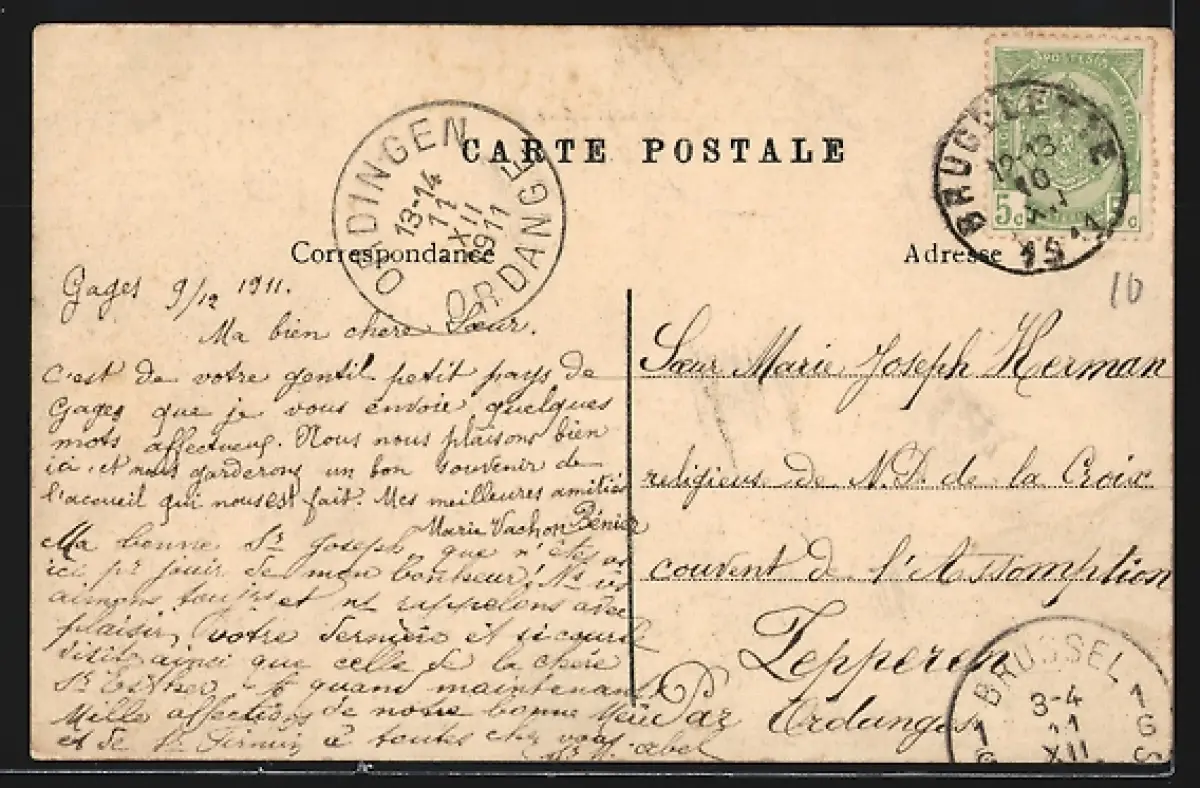 CARTE POSTALE
ORDINGEN
13-14
11
XII
1911
ORDANGE
BRUGELETTE
12-13
10
XII
POSTES
5c 5c
Correspondance
Adresse
10
Gages 9/12 1911.
Ma bien chere Sœur.
C'est de votre gentil petit pays de
Gages que je vous envoie quelques
mots affectueux. Nous nous plaisons bien
ici, et nous garderons un bon souvenir de
l'accueil qui nous est fait. Mes meilleures amitiés
Marie Vachon Bénier
Ma bonne Sr Joseph, que n'êtes vs
ici pr jouir de mon bonheur! Ns vs
aimons toujrs et ns rappelons avec
plaisir, votre dernière et si courte
visite ainsi que celle de la chère
Sr Esther - à quand maintenant
Mille affections de notre bonne Mère
et de Sr Firmin à toutes chez vous
Sœur Marie Joseph Herman
religieuse de N.D. de la Croix
couvent de l'Assomption
Zepperen
Par Ordange
BRUSSEL
3-4
11
XII